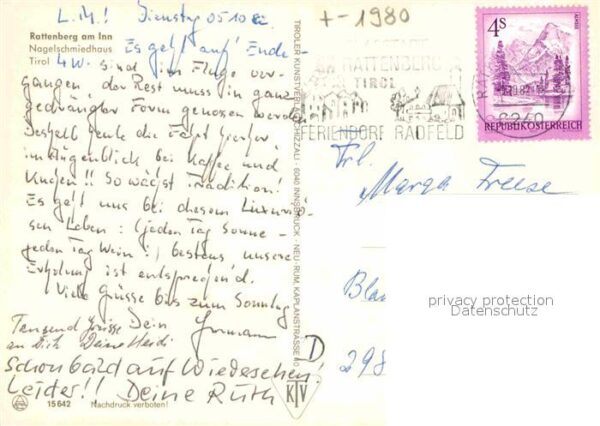 L.M.! Dienstag 05 10 82
Rattenberg am Inn
Nagelschmiedhaus
Tirol
Es geht auf' Ende -
4 W. sind im Fluge ver-
gangen, der Rest muss in ganz
gedrängter Form genossen werden
Deshalb heute die Fahrt hierher,
im Augenblick bei Kaffee und
Kuchen!! So wächst Tradition!
Es geht uns bei diesem Luxuriö-
sen Leben: (jeden Tag Sonne -
jeden Tag Wein!) bestens unsere
Erholung ist entsprechend.
Viele Grüsse bis zum Sonntag
Tausend Grüsse Dein Hermann
an Dich Deine Heidi
Schon bald auf Wiedersehen!
Leider!! Deine Ruth
15 642 Nachdruck verboten!
TIROLER KUNSTVERLAG CHIZZALI · 6040 INNSBRUCK - NEU-RUM, KAPLANSTRASSE
KTV
D
+-1980
RATTENBERG
TIROL
FERIENDORF RADFELD
6240
4S
REPUBLIK ÖSTERREICH
Frl.
Marga Freese
Bla
298
privacy protection
Datenschutz